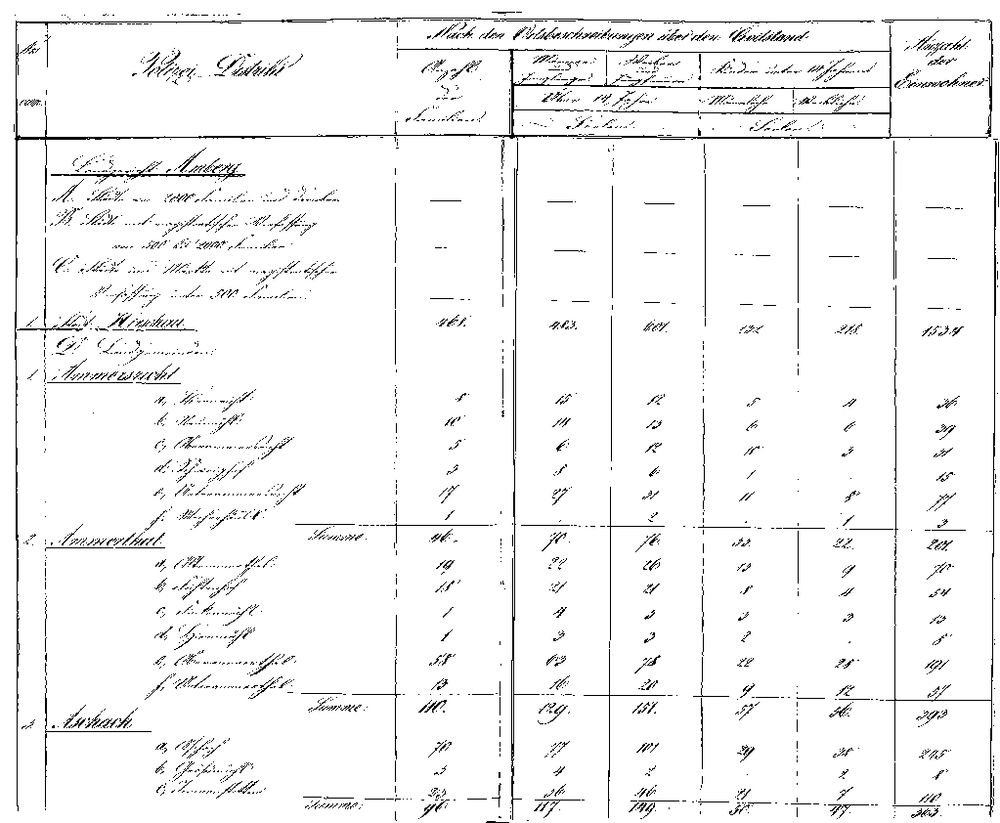 Nro
Polizei-Districte
Nach den Volksbeschreibungen über den Civilstand
Anzahl der Einwohner.
Anzahl der Familien
Männer und Jünglinge
Weiber und Jungfrauen
Kinder unter 14 Jahren
Über 14 Jahre
Männliche
Weibliche
Seelen
Seelen
Landgericht Amberg
A. Städte von 2000 Familien und darüber — — — — — —
B. Städte mit magistratischer Verfassung
von 500 bis 2000 Familien — — — — — —
C. Städte und Märkte mit magistratischer
Verfassung unter 500 Familien — — — — — —
1. Stadt Hirschau 461. 483. 601. 132 218. 1534
D. Landgemeinden
1. Ammersricht
a, 8 15 12 5 4 36
b, Neuricht 10 14 13 6 6 39
c, Oberammersricht 5 6 12 10 3 31
d, Schweighof 3 8 6 1 . 15
e, Unterammersricht 17 27 31 11 8 77
f, 1 . 2 . 1 3
Summe. 46. 70 76 33. 22. 201.
2. Ammerthal.
a, 19 22 26 13 9 70
b, Fichtenhof 18 21 21 8 4 54
c, 1 4 3 3 3 13
d, 1 3 3 2 . 8
e, Oberammerthal. 58 63 78 22 28 191
f, Unterammerthal. 13 16 20 9 12 57
Summe: 110. 129. 151. 57 56. 393
3. Aschach
a, Aschach 70 77 101 29 38 245
b, 3 4 2 . 2 8
c, 23 36 46 21 7 110
Summe: 96. 117. 149. 50. 47. 363.